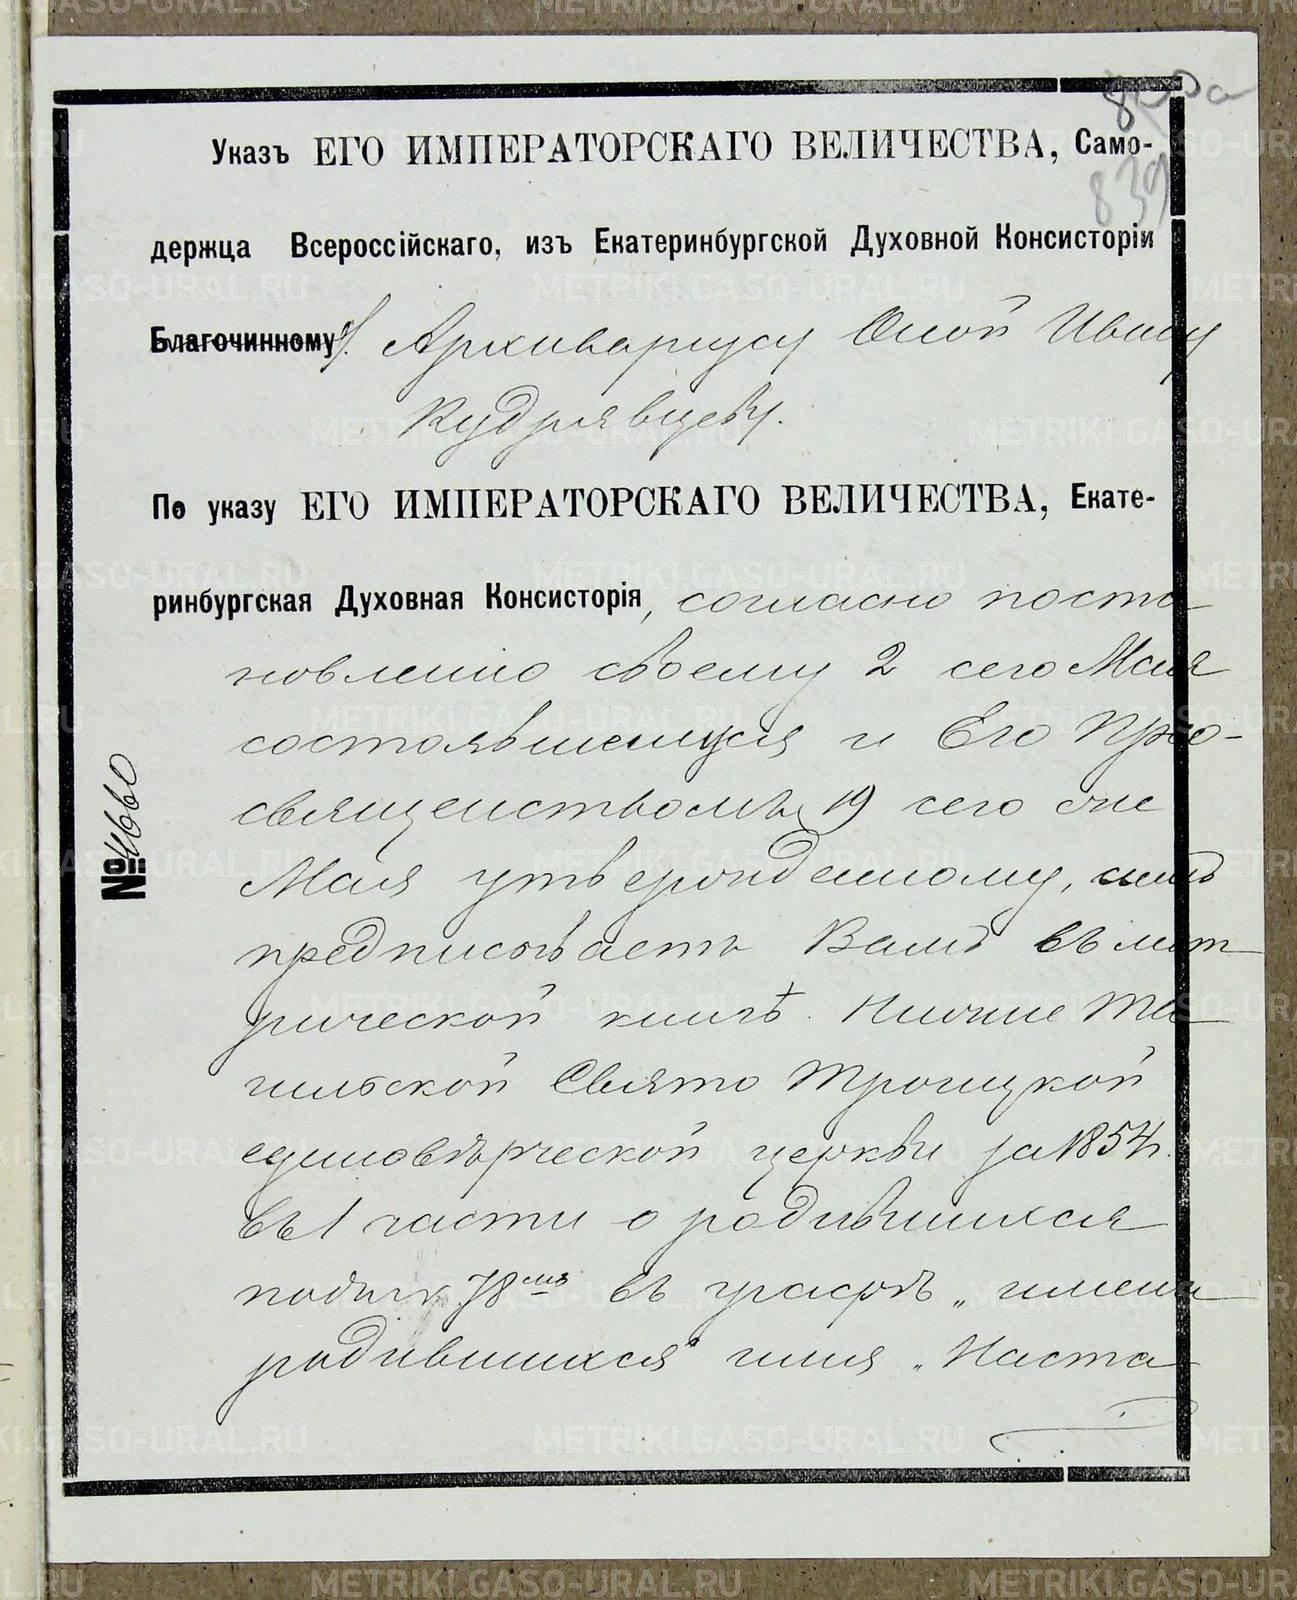 839
Указъ ЕГО ИМПЕРАТОРСКАГО ВЕЛИЧЕСТВА, Само-
держца Всероссійскаго, изъ Екатеринбургской Духовной Консисторіи
Благочинному Архиваріусу Оной Ивану
Кудрявцеву.
По указу ЕГО ИМПЕРАТОРСКАГО ВЕЛИЧЕСТВА, Екате-
ринбургская Духовная Консисторія, согласно поста
новленію своему 2 сего Мая
состоявшемуся и Его Прео-
священствомъ 19 сего же
Мая утвержденному, симъ
предписываетъ Вамъ въ мет
рической книгѣ Нижне Та
гильской Свято Троицкой
единовѣрческой церкви за 1854 г.
въ 1 части о родившихся
подъ № 78мъ въ графѣ „имена
родившихся" имя „Наста
№ 4660
METRIKI.GASO-URAL.RU